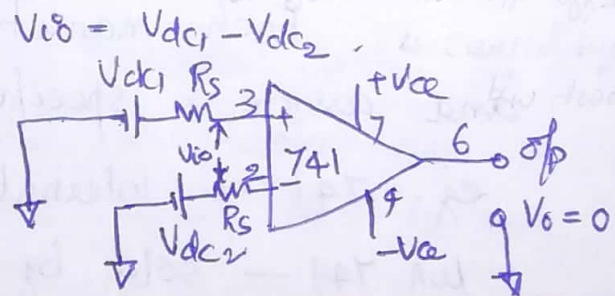 Vio = Vdc1 - Vdc2 .
Vdc1 Rs 3 + +Vcc 7
Vio 741 6 o/p
2 -
Rs 4 Vo = 0
Vdc2 -Vcc